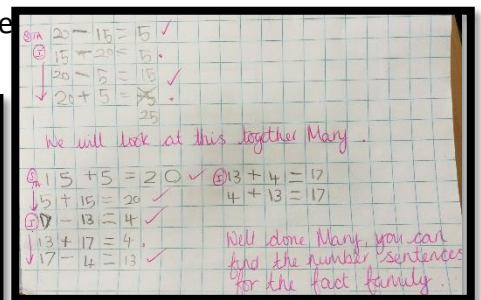 e
Sth 20 - 15 = 5 ✓
I 15 - 20 = 5 .
20 - 5 = 15 ✓
20 + 5 = 25 .
We will look at this together Mary.
15 + 5 = 20 ✓
5 + 15 = 20 ✓
I 17 - 13 = 4 ✓
13 + 17 = 4 .
17 - 4 = 13 ✓
I 13 + 4 = 17
4 + 13 = 17
Well done Mary, you can
find the number sentences
for the fact family.